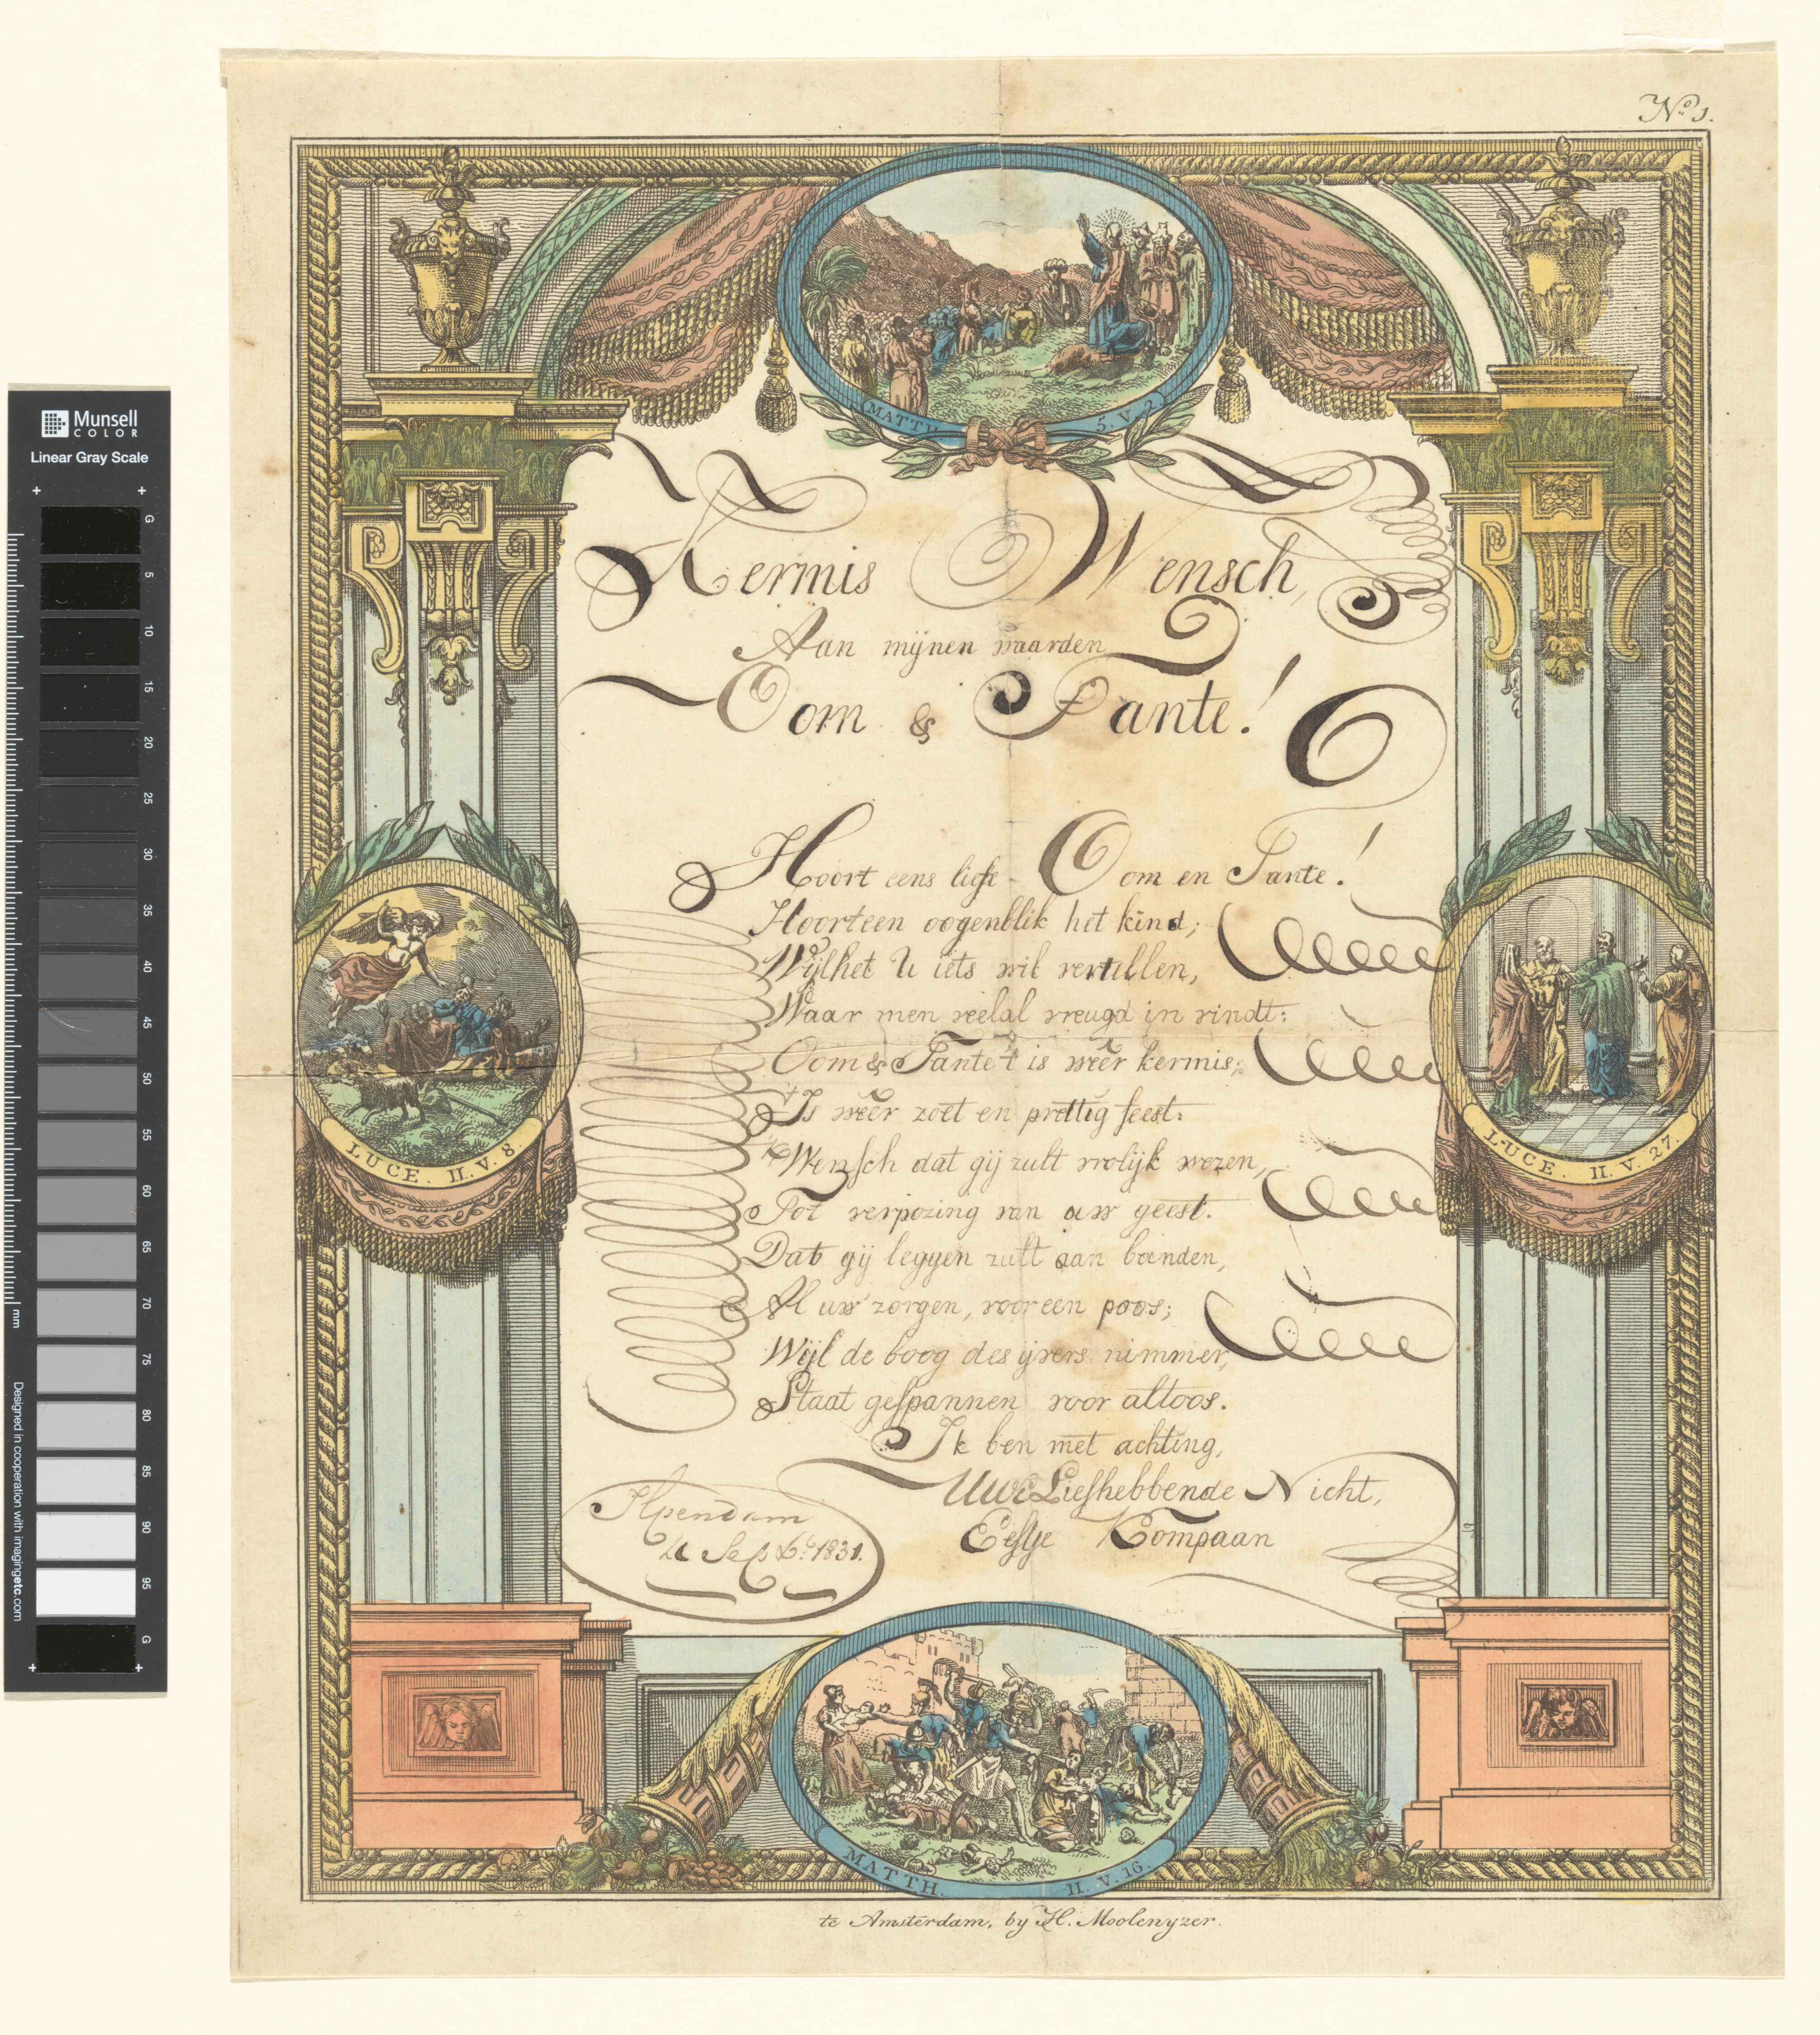 Nº 1.
MATTH. 5. V. 2.
Kermis Wensch,
Aan mijnen waarden
Oom & Tante!
Hoort eens liefe Oom en Tante!
Hoort een oogenblik het kind;
Wijl het U iets wil vertellen,
Waar men veelal vreugd in vindt:
Oom & Tante 't is wéér kermis;
't Is wéér zoet en prettig feest:
'k Wensch dat gij zult vrolijk wezen,
Tot verpozing van uw geest.
Dat gij leggen zult aan banden,
Al uw zorgen, voor een poos;
Wijl de boog des ijvers nimmer,
Staat gespannen voor altoos.
Ik ben met achting,
Uwe Liefhebbende Nicht,
Eefje Kompaan
Ilpendam
Septb: 1831.
LUCE. II. V. 8.
LUCE. II. V. 27.
MATTH. II. V. 16.
te Amsterdam, by H. Moolenyzer.
Munsell
COLOR
Linear Gray Scale
G
5
10
15
20
25
30
35
40
45
50
55
60
65
70
75
80
85
90
95
G
mm
Designed in cooperation with imagingetc.com